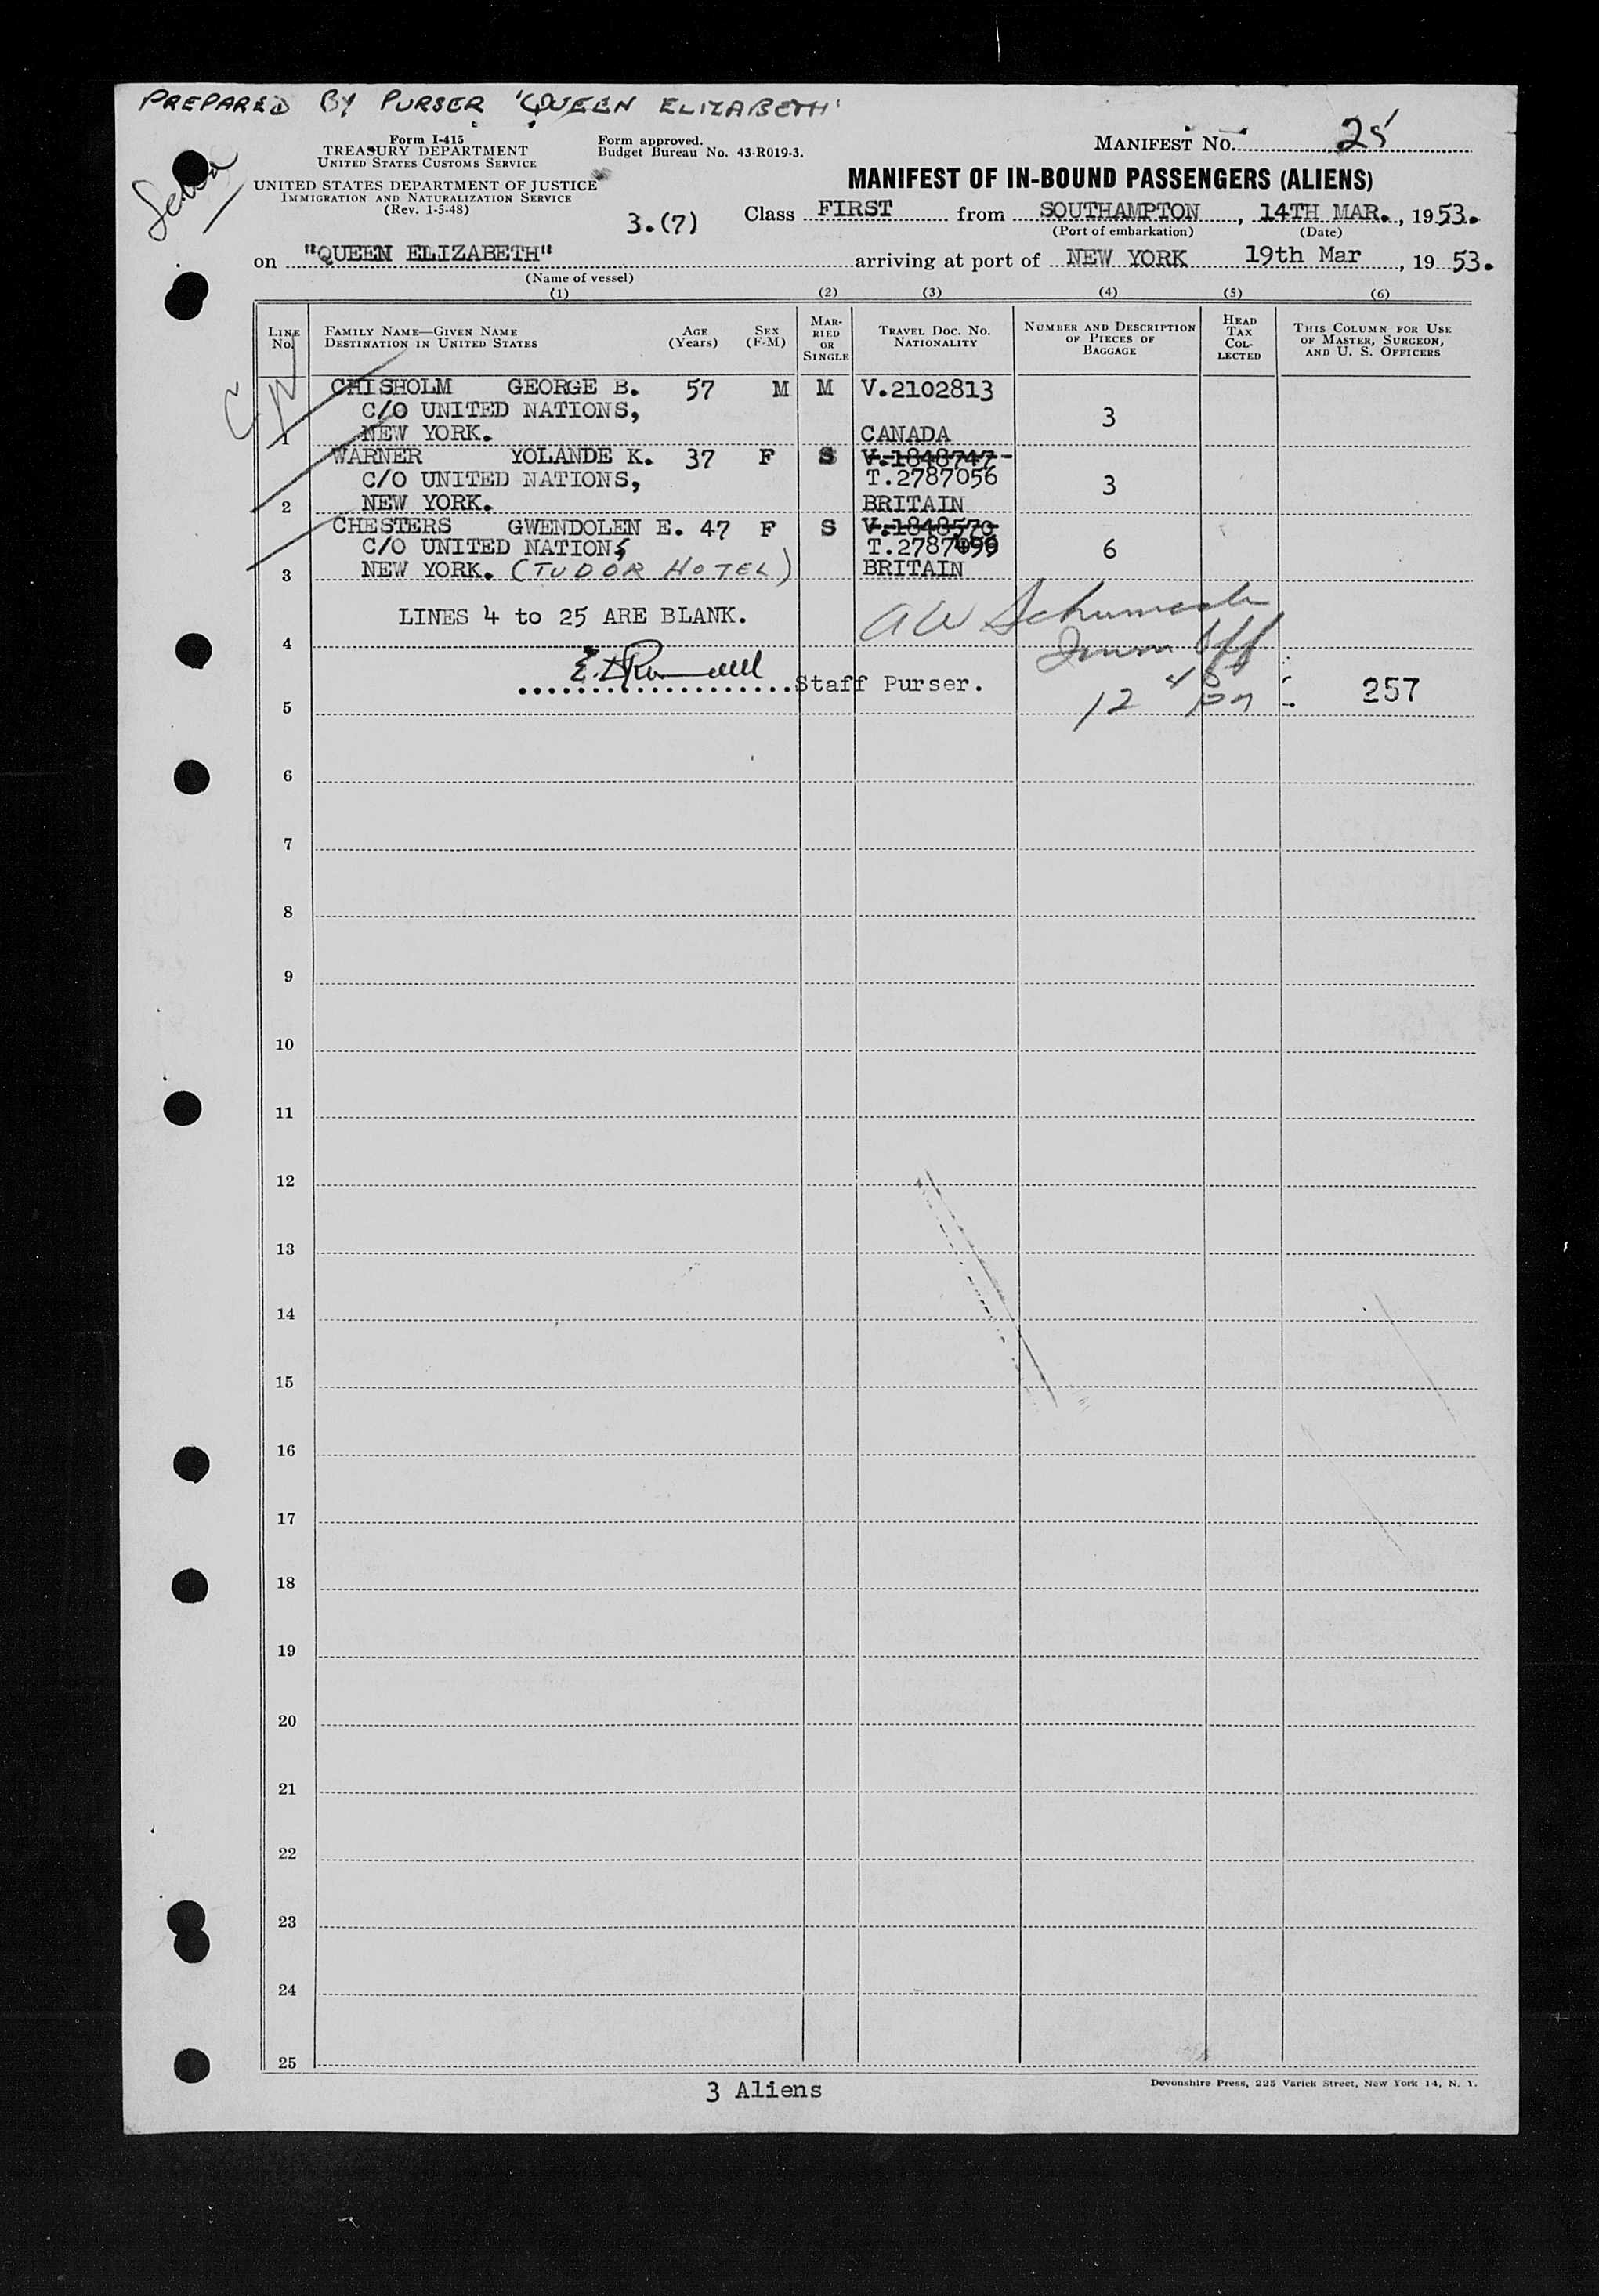 PREPARED BY PURSER 'QUEEN ELIZABETH'
Form I-415
TREASURY DEPARTMENT
UNITED STATES CUSTOMS SERVICE
UNITED STATES DEPARTMENT OF JUSTICE
IMMIGRATION AND NATURALIZATION SERVICE
(Rev. 1-5-48)
Form approved.
Budget Bureau No. 43-R019-3.
MANIFEST NO. 25
MANIFEST OF IN-BOUND PASSENGERS (ALIENS)
3.(7) Class FIRST from SOUTHAMPTON, 14TH MAR., 1953.
(Port of embarkation) (Date)
on "QUEEN ELIZABETH" arriving at port of NEW YORK 19th Mar, 1953.
(Name of vessel)
(1) (2) (3) (4) (5) (6)
LINE NO.
FAMILY NAME—GIVEN NAME
DESTINATION IN UNITED STATES
AGE (Years)
SEX (F-M)
MARRIED OR SINGLE
TRAVEL DOC. NO. NATIONALITY
NUMBER AND DESCRIPTION OF PIECES OF BAGGAGE
HEAD TAX COLLECTED
THIS COLUMN FOR USE OF MASTER, SURGEON, AND U. S. OFFICERS
CHISHOLM GEORGE B. 57 M M V.2102813
C/O UNITED NATIONS, 3
1 NEW YORK. CANADA
WARNER YOLANDE K. 37 F S V.1848747
C/O UNITED NATIONS, T.2787056 3
2 NEW YORK. BRITAIN
CHESTERS GWENDOLEN E. 47 F S V.1848570
C/O UNITED NATIONS T.2787099 6
3 NEW YORK. (TUDOR HOTEL) BRITAIN
LINES 4 to 25 ARE BLANK.
A W
Imm Off
4
Staff Purser. 12 257
5
6
7
8
9
10
11
12
13
14
15
16
17
18
19
20
21
22
23
24
25
3 Aliens
Devonshire Press, 225 Varick Street, New York 14, N. Y.